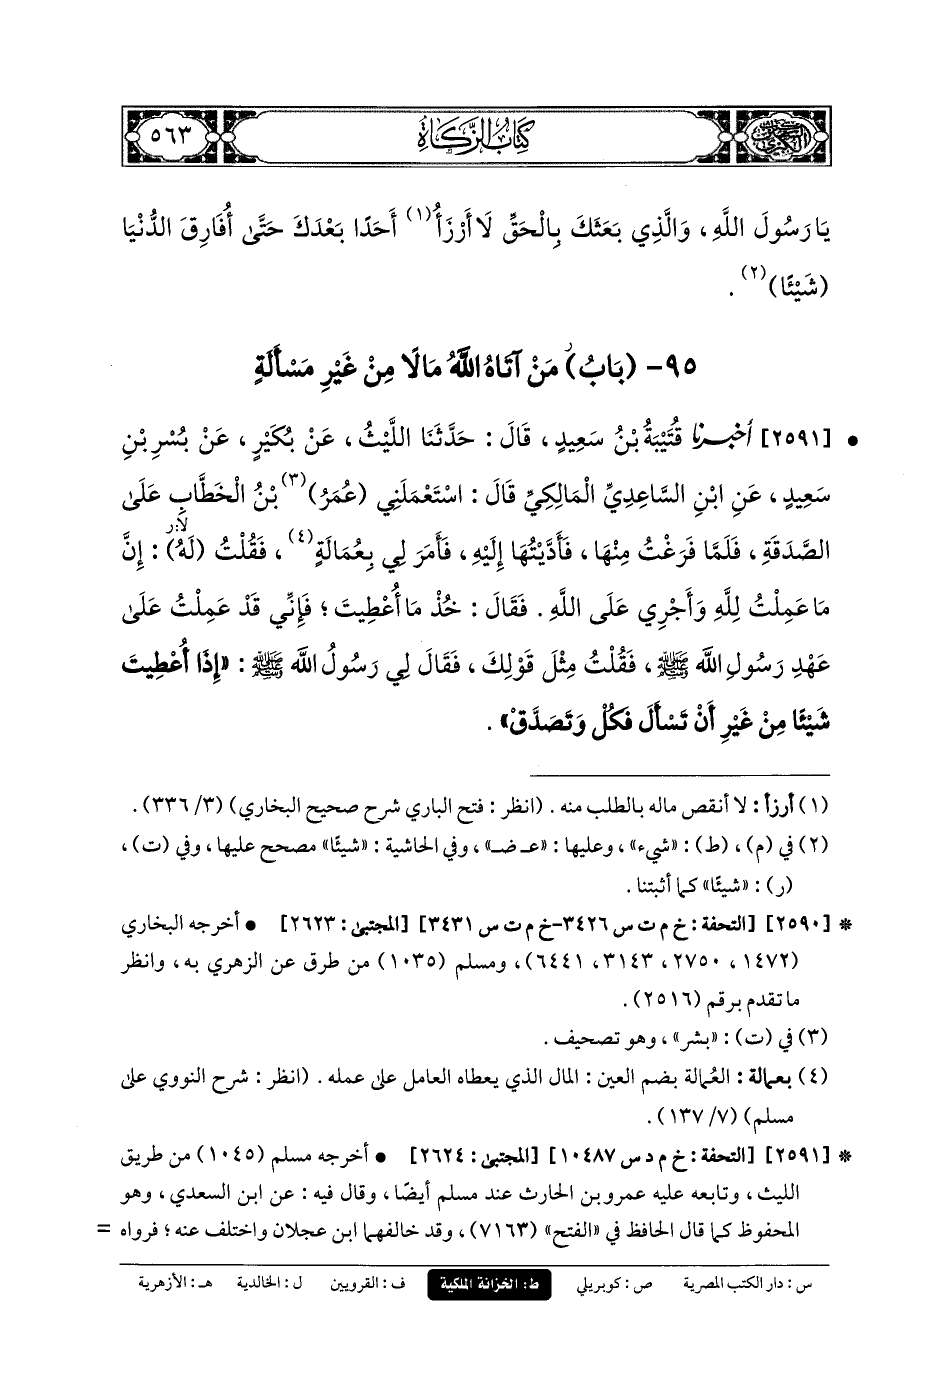 كتاب الزكاة
٥٦٣
يَا رَسُولَ اللَّهِ، وَالَّذِي بَعَثَكَ بِالْحَقِّ لَا أَرْزَأُ(١) أَحَدًا بَعْدَكَ حَتَّى أُفَارِقَ الدُّنْيَا
(شَيْئًا)(٢).
٩٥- (بَابُ) مَنْ آتَاهُ اللَّهُ مَالًا مِنْ غَيْرِ مَسْأَلَةٍ
• [٢٥٩١] أخبرنا قُتَيْبَةُ بْنُ سَعِيدٍ، قَالَ: حَدَّثَنَا اللَّيْثُ، عَنْ بُكَيْرٍ، عَنْ بُسْرِ بْنِ
سَعِيدٍ، عَنِ ابْنِ السَّاعِدِيِّ الْمَالِكِيِّ قَالَ: اسْتَعْمَلَنِي (عُمَرُ)(٣) بْنُ الْخَطَّابِ عَلَى
الصَّدَقَةِ، فَلَمَّا فَرَغْتُ مِنْهَا، فَأَدَّيْتُهَا إِلَيْهِ، فَأَمَرَ لِي بِعُمَالَةٍ(٤)، فَقُلْتُ (لَهُ): إِنَّ
مَا عَمِلْتُ لِلَّهِ وَأَجْرِي عَلَى اللَّهِ. فَقَالَ: خُذْ مَا أُعْطِيتَ؛ فَإِنِّي قَدْ عَمِلْتُ عَلَى
عَهْدِ رَسُولِ اللَّه ﷺ، فَقُلْتُ مِثْلَ قَوْلِكَ، فَقَالَ لِي رَسُولُ اللَّه ﷺ: «إِذَا أُعْطِيتَ
شَيْئًا مِنْ غَيْرِ أَنْ تَسْأَلَ فَكُلْ وَتَصَدَّقْ».
(١) أرزأ: لا أنقص ماله بالطلب منه. (انظر: فتح الباري شرح صحيح البخاري) (٣/ ٣٣٦).
(٢) في (م)، (ط): «شيء»، وعليها: «عـ ضـ»، وفي الحاشية: «شيئًا» مصحح عليها، وفي (ت)،
(ر): «شيئًا» كما أثبتنا.
* [٢٥٩٠] [التحفة: خ م ت س ٣٤٢٦-خ م ت س ٣٤٣١] [المجتبى: ٢٦٢٣] • أخرجه البخاري
(١٤٧٢، ٢٧٥٠، ٣١٤٣، ٦٤٤١)، ومسلم (١٠٣٥) من طرق عن الزهري به، وانظر
ما تقدم برقم (٢٥١٦).
(٣) في (ت): «بشر»، وهو تصحيف.
(٤) بعمالة: العُمالة بضم العين: المال الذي يعطاه العامل على عمله. (انظر: شرح النووي على
مسلم) (٧/ ١٣٧).
* [٢٥٩١] [التحفة: خ م د س ١٠٤٨٧] [المجتبى: ٢٦٢٤] • أخرجه مسلم (١٠٤٥) من طريق
الليث، وتابعه عليه عمرو بن الحارث عند مسلم أيضًا، وقال فيه: عن ابن السعدي، وهو
المحفوظ كما قال الحافظ في «الفتح» (٧١٦٣)، وقد خالفهما ابن عجلان واختلف عنه؛ فرواه =
س: دار الكتب المصرية ص: كوبريلي ط: الخزانة الملكية ف: القرويين ل: الخالدية هـ: الأزهرية